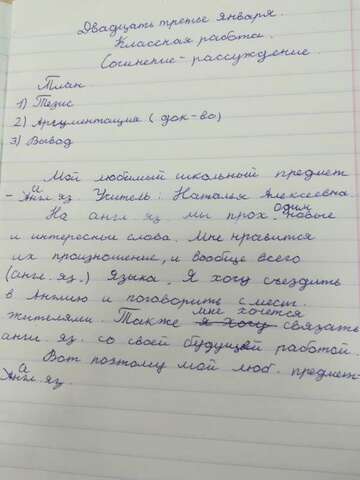 Двадцать третье января.
Классная работа.
Сочинение-рассуждение.
План
1) Тезис
2) Аргументация (док-во)
3) Вывод
Мой любимый школьный предмет
- Англ яз. Учитель: Наталья Алексеевна
На англ яз. мы проходим новые
и интересные слова. Мне нравится
их произношение, и вообще всего
(англ. яз.) Языка. Я хочу съездить
в Англию и поговорить с местн.
жителями. Также я хочу мне хочется связать
англ. яз. со своей будущей работой.
Вот поэтому мой люб. предмет-
Англ яз.